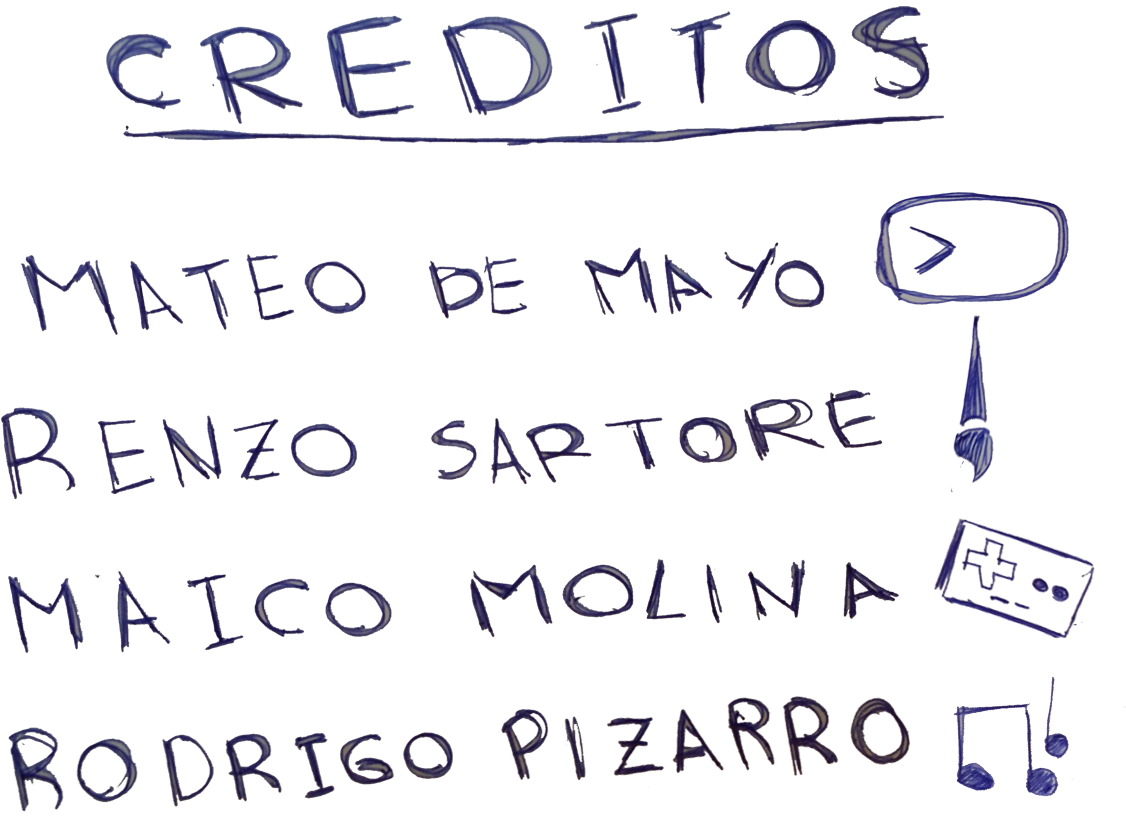 CREDITOS
MATEO DE MAYO >
RENZO SARTORE
MAICO MOLINA
RODRIGO PIZARRO